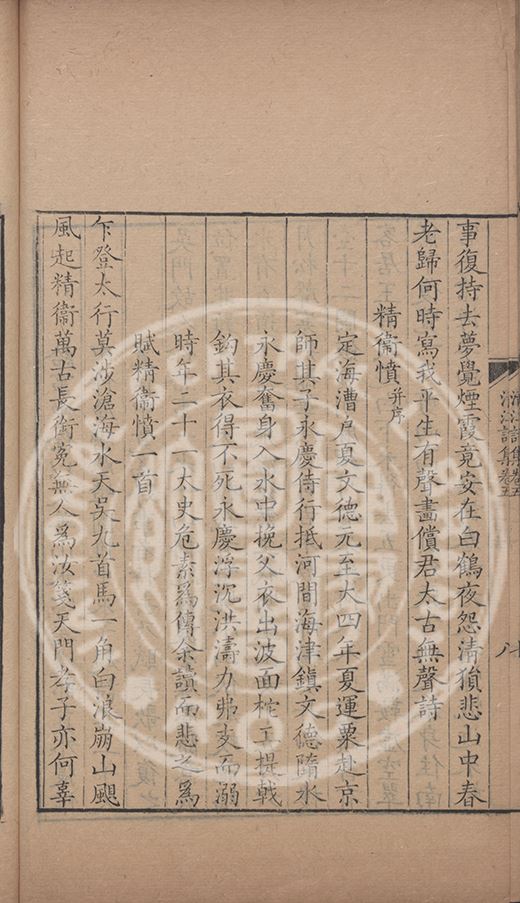 事復持去夢覺煙霞竟安在白鶴夜怨淸猨悲山中春
老歸何時寫我平生有聲畫償君太古無聲詩
精衞憤并序
定海漕户夏文德元至大四年夏運粟赴京
師其子永慶侍行抵河間海津鎭文德隋水
永慶奮身入水中挽父衣出波面柁工提戟
鈎其衣得不死永慶浮沉洪濤力弗支而溺
時年二十一太史危素爲傳余讀而悲之爲
賦精衞憤一首
乍登太行莫涉滄海水天吳九首馬一角白浪崩山颶
風起精衞萬古長銜冤無人爲汝箋天門孝子亦何辜
詩集卷五